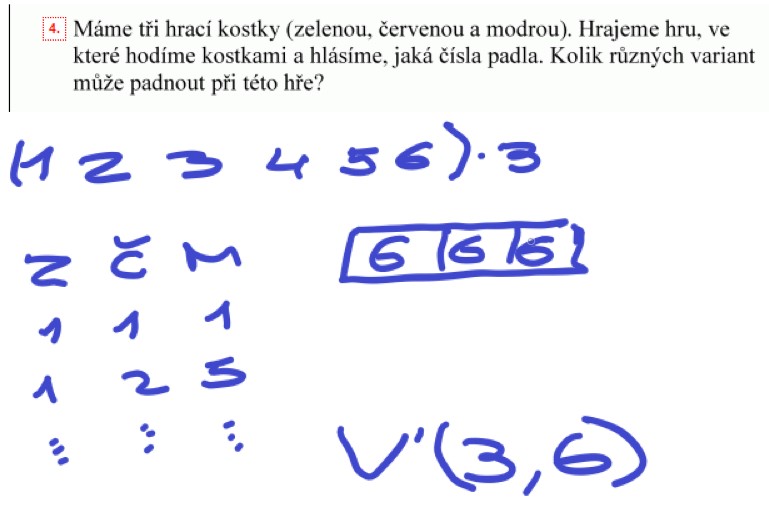 4. Máme tři hrací kostky (zelenou, červenou a modrou). Hrajeme hru, ve
které hodíme kostkami a hlásíme, jaká čísla padla. Kolik různých variant
může padnout při této hře?
(1 2 3 4 5 6) · 3
Z Č M
6 6 6
1 1 1
1 2 5
⋮ ⋮ ⋮
V'(3,6)